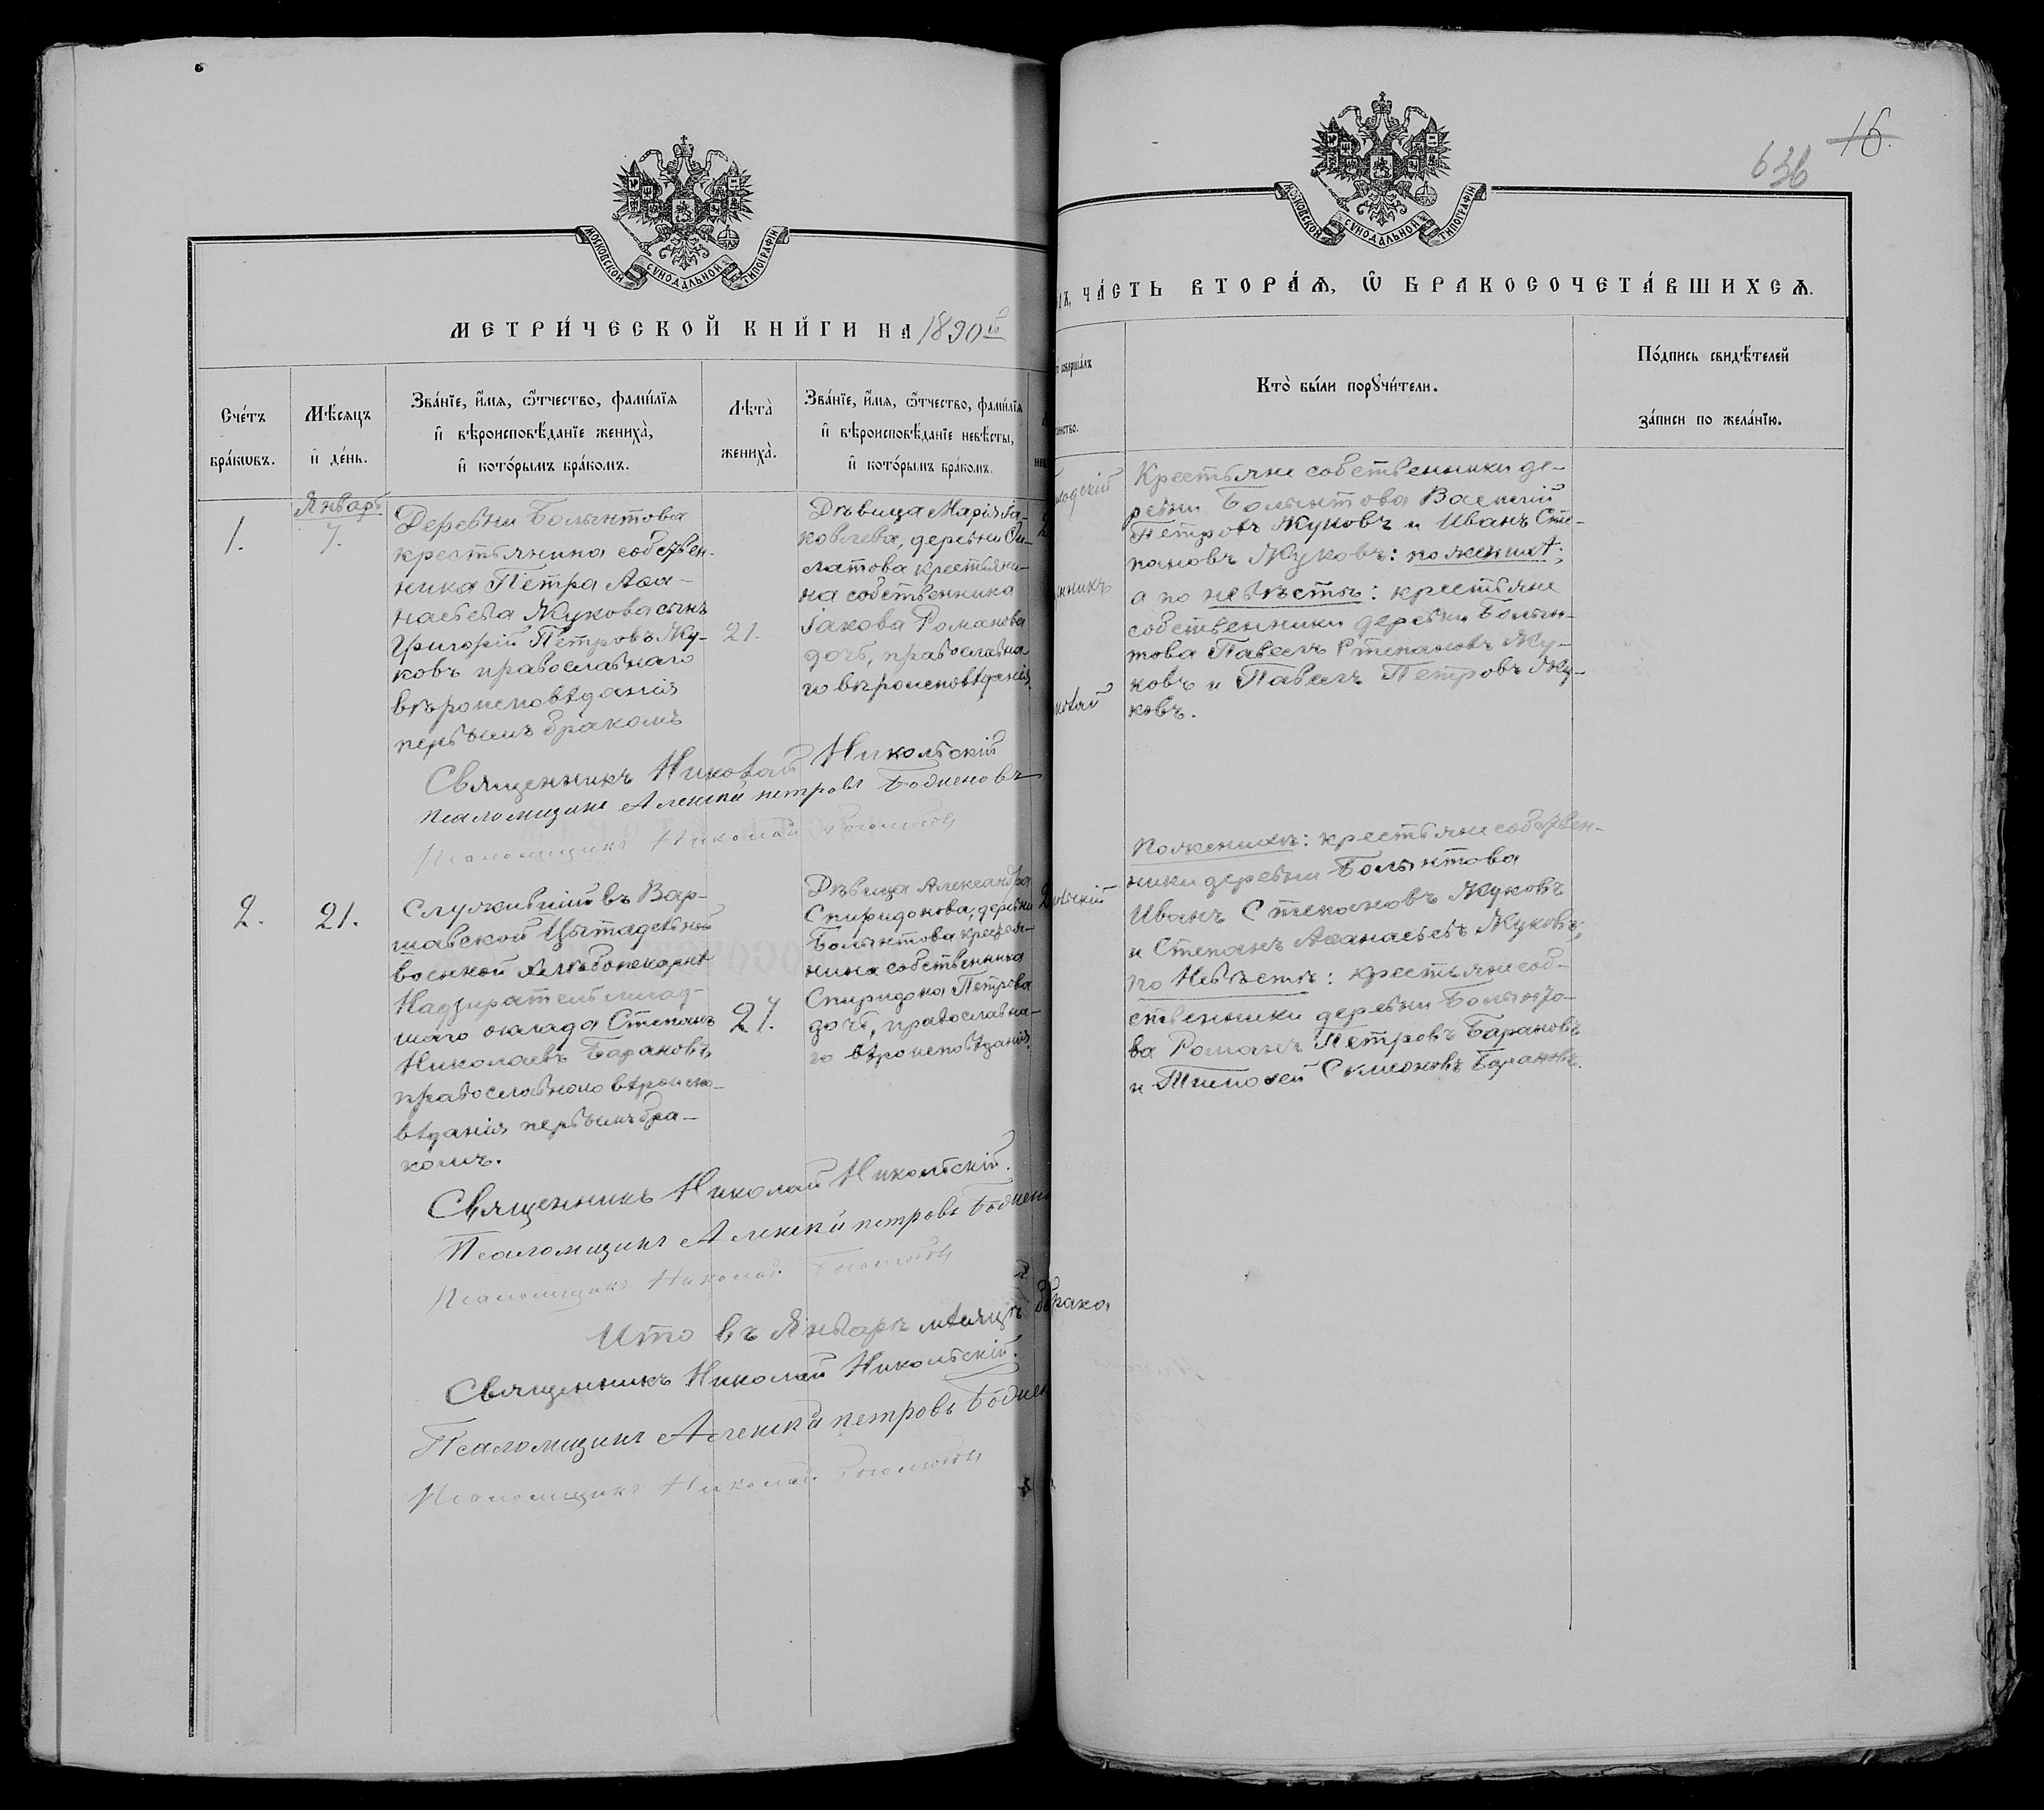 МОСКОВСКОЙ СѴНОДАЛЬНОЙ ТИПОГРАФІИ
МЕТРИ́ЧЕСКОЙ КНИ́ГИ НА 1890й
Сче́тъ бра́кѡвъ.
Мѣ́сяцъ и҆ де́нь.
Зва́нїе, и҆́мя, ѻ҆́тчество, фами́лїя
и҆ вѣроисповѣ́данїе жениха̀,
и҆ кото́рымъ бра́комъ.
Лѣта̀ жениха̀.
Зва́нїе, и҆́мя, ѻ҆́тчество, фами́лїя
и҆ вѣроисповѣ́данїе невѣ́сты,
и҆ кото́рымъ бра́комъ.
Январь
1.
7.
Деревни Болынтова
крестьянина собствен-
ника Петра Аѳа-
насьева Жукова сынъ
Григорій Петровъ Жу-
ковъ православнаго
вѣроисповѣданія
первымъ бракомъ
21.
Дѣвица Марія Іа-
ковлева, деревни
латова крестьяни-
на собственника
Іакова Романова
дочь, православна-
го вѣроисповѣданія.
Священникъ Николай Никольскій
Псаломщикъ Алексѣй петровъ
Псаломщикъ Николай
2.
21.
Служившій въ Вар-
шавской Цытадельной
военной хлѣбопекарнѣ
Надзиратель млад-
шаго оклада Степанъ
Николаевъ Барановъ,
православнаго вѣроиспо-
вѣданія первымъ бра-
комъ.
27.
Дѣвица Александра
Спиридонова, деревни
Болынтова крестья-
нина собственника
Спиридона Петрова
дочь, православна-
го вѣроисповѣданія.
Священникъ Николай Никольскій.
Псаломщикъ Алексѣй петровъ
Псаломщикъ Николай
Итого въ Январѣ мѣсяцѣ 2 брака
Священникъ Николай Никольскій.
Псаломщикъ Алексѣй петровъ
Псаломщикъ Николай
16.
636
МОСКОВСКОЙ СѴНОДАЛЬНОЙ ТИПОГРАФІИ
ЧА́СТЬ ВТОРА́Ѧ, Ѽ БРАКОСОЧЕТА́ВШИХСѦ.
Кто̀ бы́ли порꙋчи́тели.
По́дпись свидѣ́телей
за́писи по жела́нїю.
Крестьяне собственники де-
ревни Болынтова Василій
Петровъ Жуковъ и Иванъ Сте-
пановъ Жуковъ: по женихѣ;
а по невѣстѣ: крестьяне
собственники деревни Болын-
това Павелъ Степановъ Жу-
ковъ и Павелъ Петровъ Жу-
ковъ.
По женихѣ: крестьяне собствен-
ники деревни Болынтова
Иванъ Степановъ Жуковъ
и Степанъ Аѳанасьевъ Жуковъ;
по Невѣстѣ: крестьяне соб-
ственники деревни Болынто-
ва Романъ Петровъ Барановъ
и Тимоѳей Симеоновъ Барановъ.